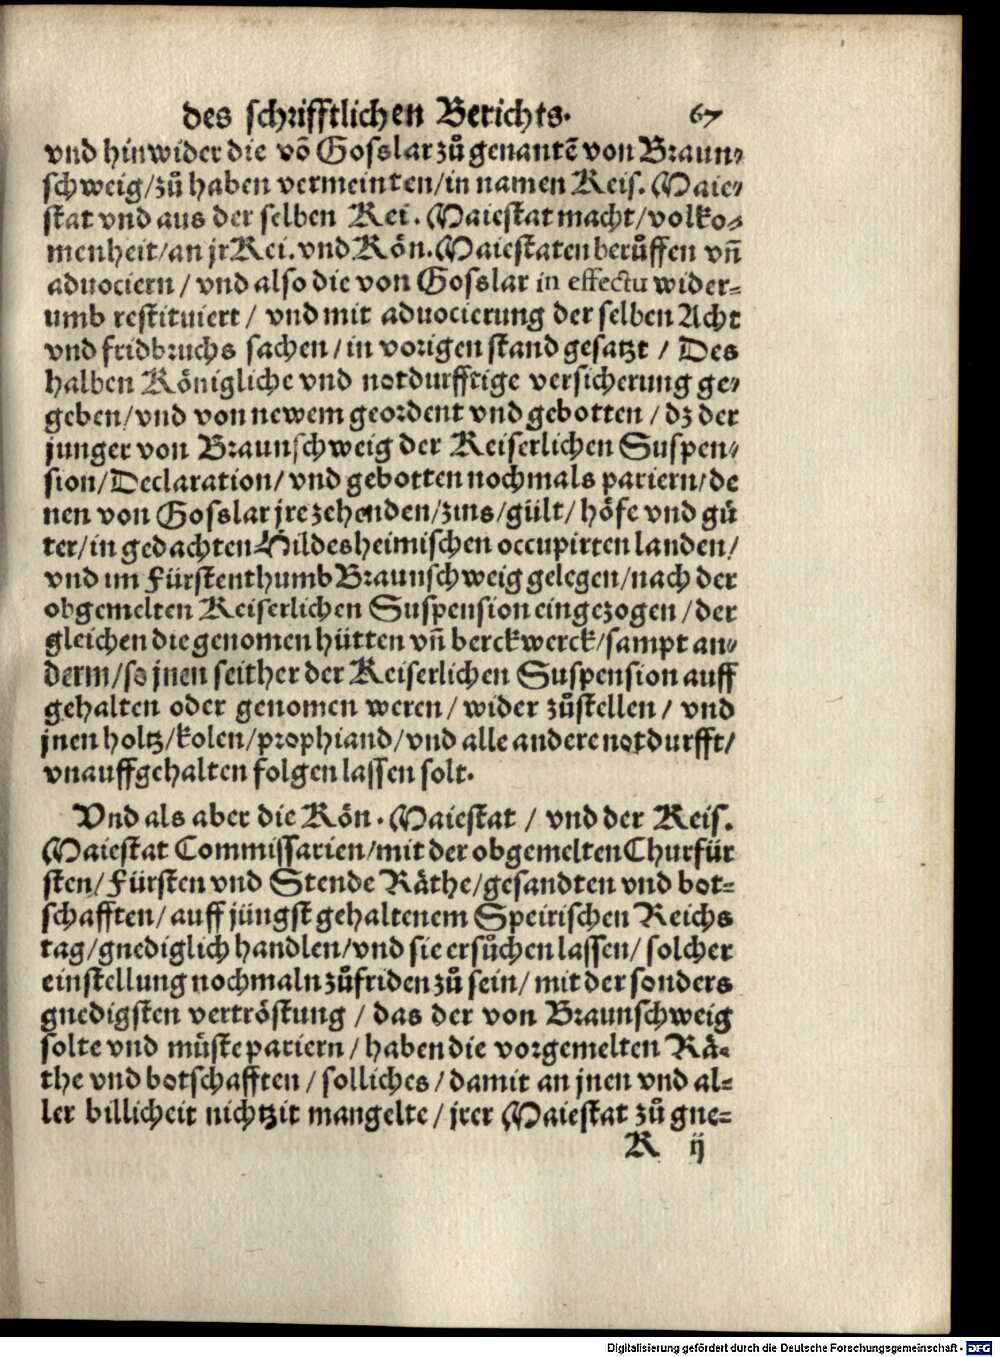 des schrifftlichen Berichts. 67
vnd hinwider die võ Gosslar zů genantẽ von Braun-
schweig/zů haben vermeinten/in namen Keis. Maie-
stat vnd aus der selben Kei. Maiestat macht/volko-
menheit/an jr Kei. vnd Kön. Maiestaten berůffen vñ
aduociern/ vnd also die von Gosslar in effectu wider-
umb restituiert/ vnd mit aduocierung der selben Acht
vnd fridbruchs sachen/in vorigen stand gesatzt / Des
halben Königliche vnd notdurfftige versicherung ge-
geben/vnd von newem geordent vnd gebotten / dz der
junger von Braunschweig der Keiserlichen Suspen-
sion/Declaration/ vnd gebotten nochmals pariern/de
nen von Gosslar jre zehenden/zins/gült/ höfe vnd gů
ter/in gedachten Hildesheimischen occupirten landen/
vnd im Fürstenthumb Braunschweig gelegen/nach der
obgemelten Keiserlichen Suspension eingezogen /der
gleichen die genomen hütten vñ berckwerck/sampt an-
derm/so jnen seither der Keiserlichen Suspension auff
gehalten oder genomen weren/ wider zůstellen/ vnd
jnen holtz/kolen/prophiand/vnd alle andere notdurfft/
vnauffgehalten folgen lassen solt.
Vnd als aber die Kön. Maiestat / vnd der Keis.
Maiestat Commissarien/mit der obgemelten Churfür
sten/Fürsten vnd Stende Räthe/gesandten vnd bot-
schafften/ auff jüngst gehaltenem Speirischen Reichs
tag/gnediglich handlen/vnd sie ersůchen lassen/ solcher
einstellung nochmaln zůfriden zů sein/ mit der sonders
gnedigsten vertröstung / das der von Braunschweig
solte vnd müste pariern/ haben die vorgemelten Rä-
the vnd botschafften / solliches/ damit an jnen vnd al-
ler billicheit nichtzit mangelte/ jrer Maiestat zů gne-
R ij
Digitalisierung gefördert durch die Deutsche Forschungsgemeinschaft - DFG